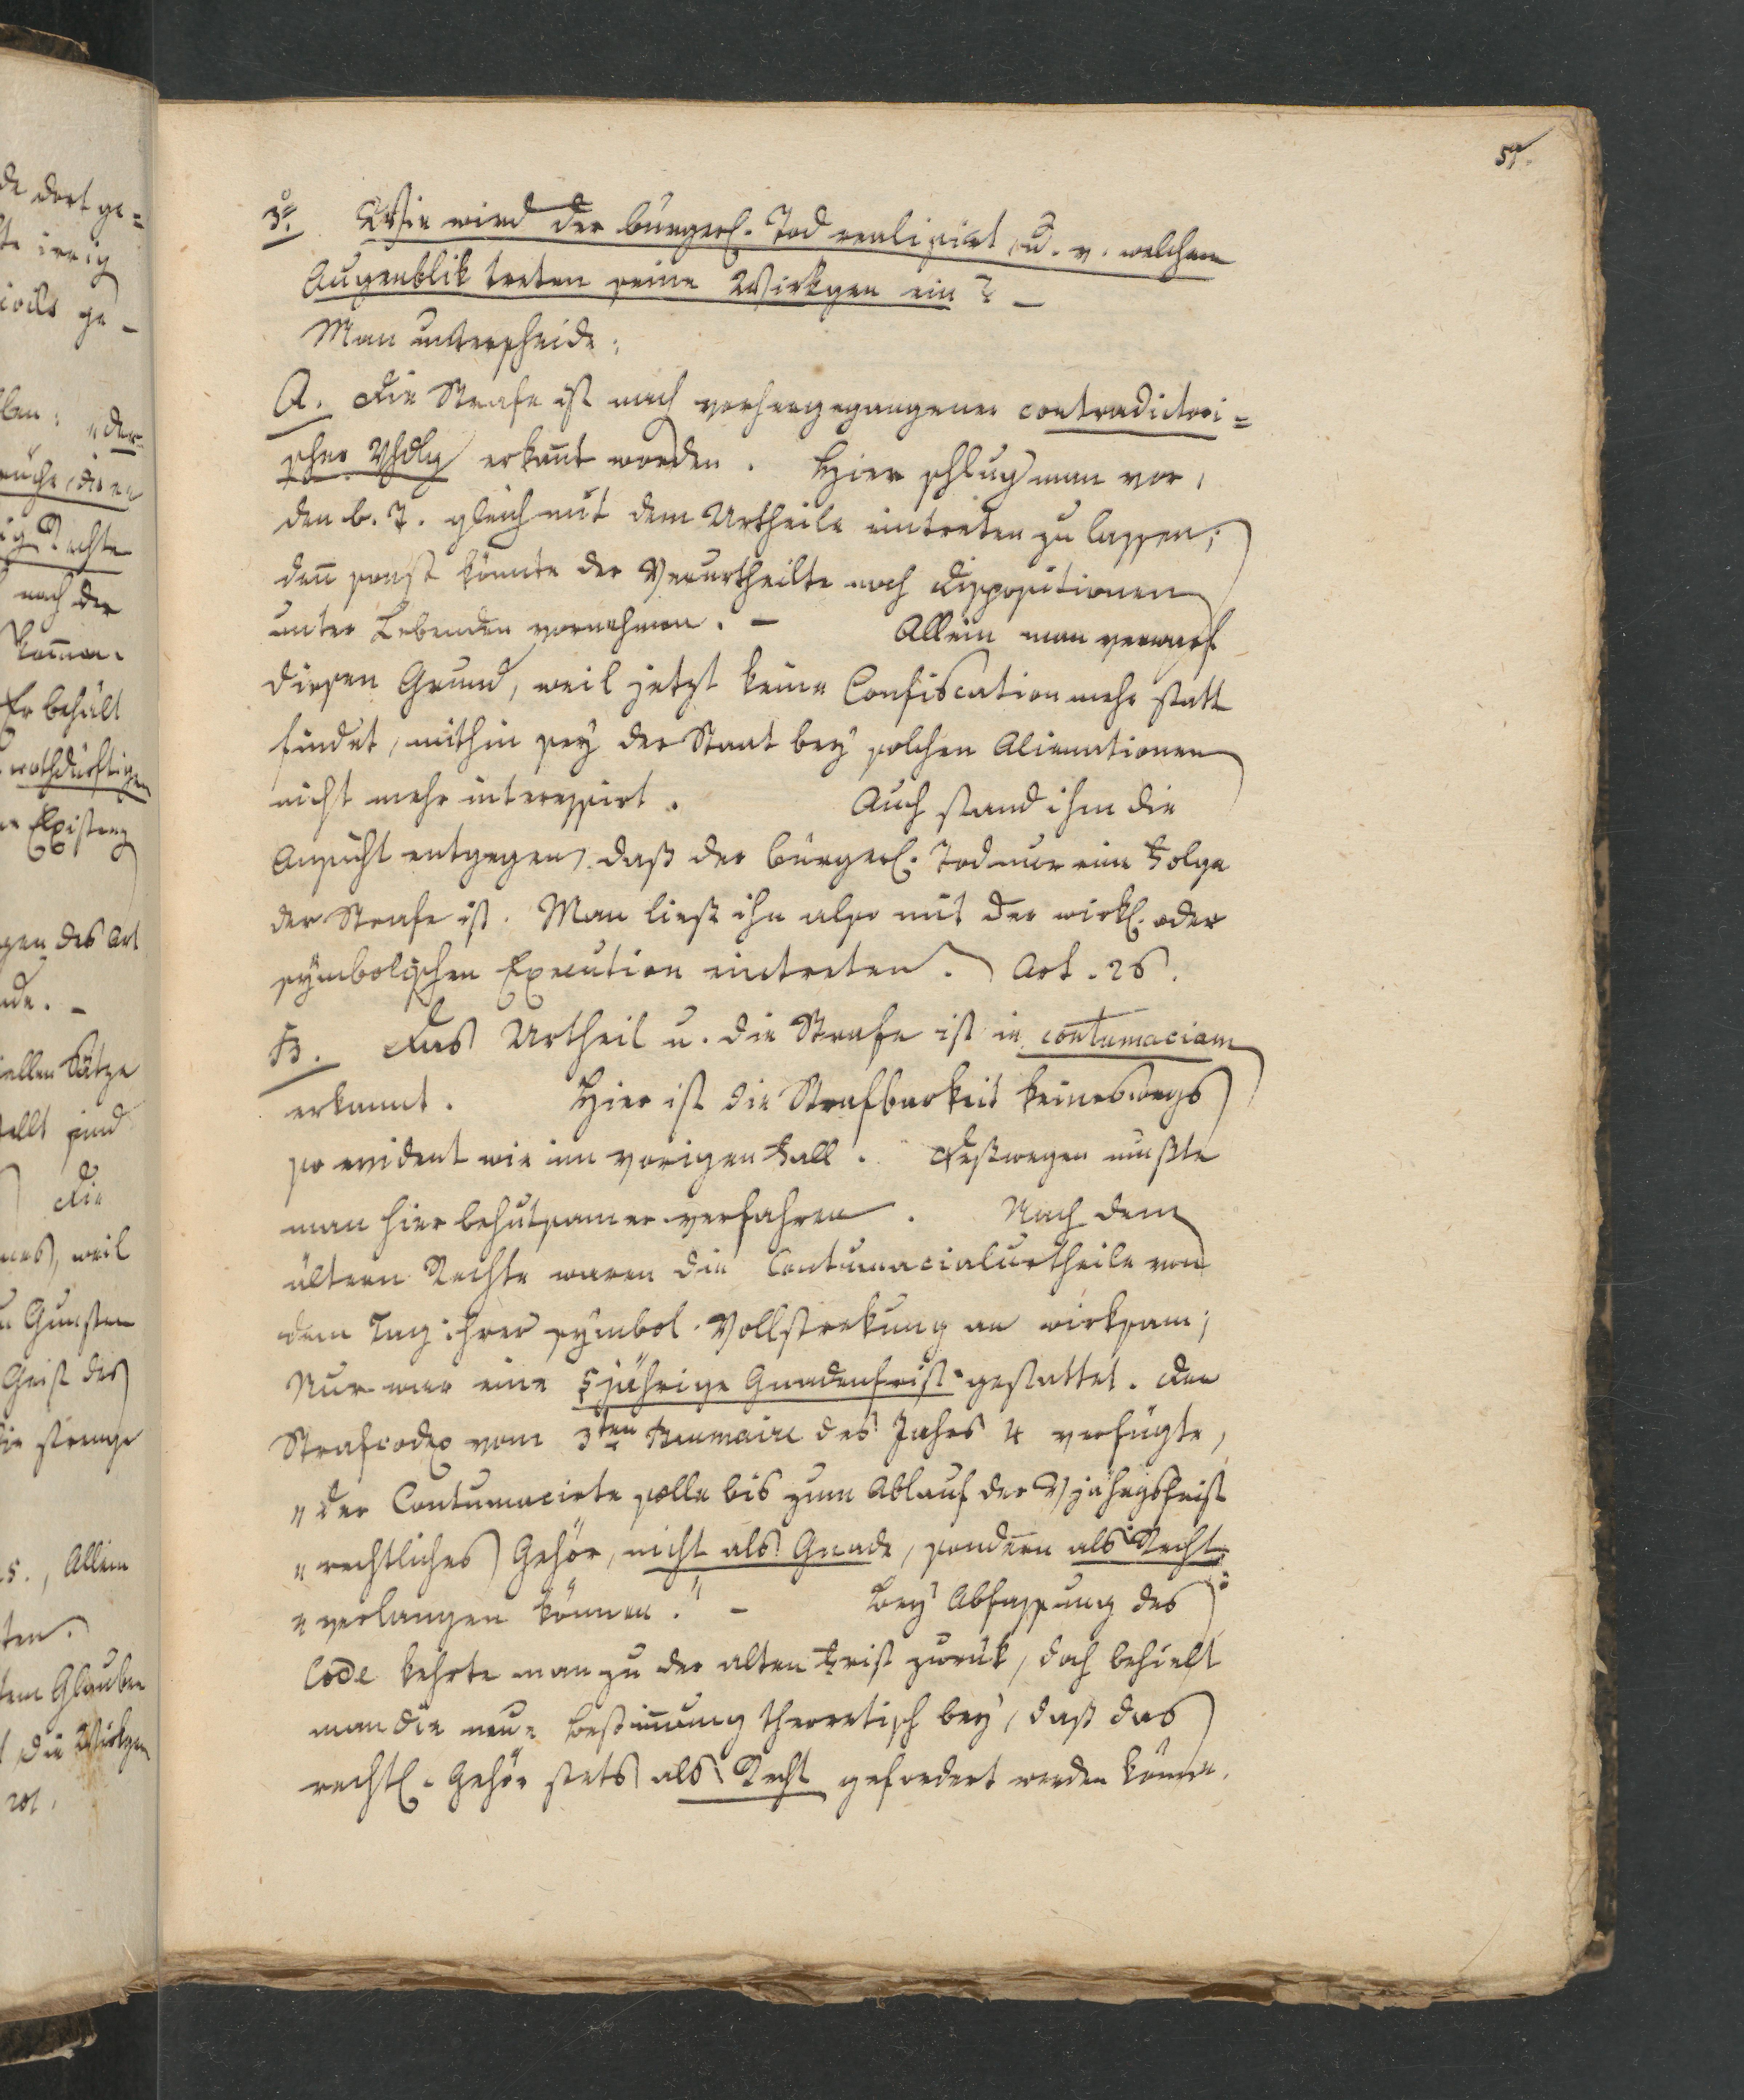 de dort ge=
te irrig
ge-
der
Rechte
nach der
komen.
Er behält
nothdürftigen
Existenz
gen des Art
de. -
ellen Sätze
stellt sind
Die
weil
Gunsten
Geist des
die strenge
Allein
ten.
dem Glauben
die Wirkgen
57.
3o. Wie wird der bürgerl. Tod realisirt, u. v. welchem
Augenblik treten seine Wirkgen ein? -
Man unterscheide:
A. Die Strafe ist nach vorhergegangener contradictori=
scher Vhdlg erkannt worden. Hier schlug man vor,
den b. T. gleich mit dem Urtheile eintreten zu lassen;
denn sonst könnte der Verurtheilte noch Dispositionen
unter Lebenden vornehmen. - Allein man verwarf
diesen Grund, weil jetzt keine Confiscation mehr statt
findet, mithin sey der Staat bey solchen Alienationen
nicht mehr interessirt. Auch stand ihm die
Ansicht entgegen, daß der bürgerl. Tod nur eine Folge
der Strafe ist. Man ließ ihn also mit der wirkl. oder
symbolischen Execution eintreten. Art. 26.
B. Das Urtheil u. die Strafe ist in contumaciam
erkannt. Hier ist die Strafbarkeit keineswegs
so evident wie im vorigen Fall. Deßwegen mußte
man hier behutsamer verfahren. Nach dem
ältern Rechte waren die Contumacialurtheile von
dem Tag ihrer symbol. Vollstrekung an wirksam;
Nur war eine 5jährige Gnadenfrist gestattet. Der
Strafcodex vom 3ten Brumaire des Jahrs 4 verfügte,
"der Contumacirte solle bis zum Ablauf der Vjährgsfrist
"rechtliches Gehör, nicht als Gnade, sondern als Recht,
"verlangen können." - Bey Abfassung des
Code kehrte man zu der alten Frist zurük, doch behielt
man die neue Bestimung theoretisch bey, daß das
rechtl. Gehör stets als Recht gefordert werden könne.